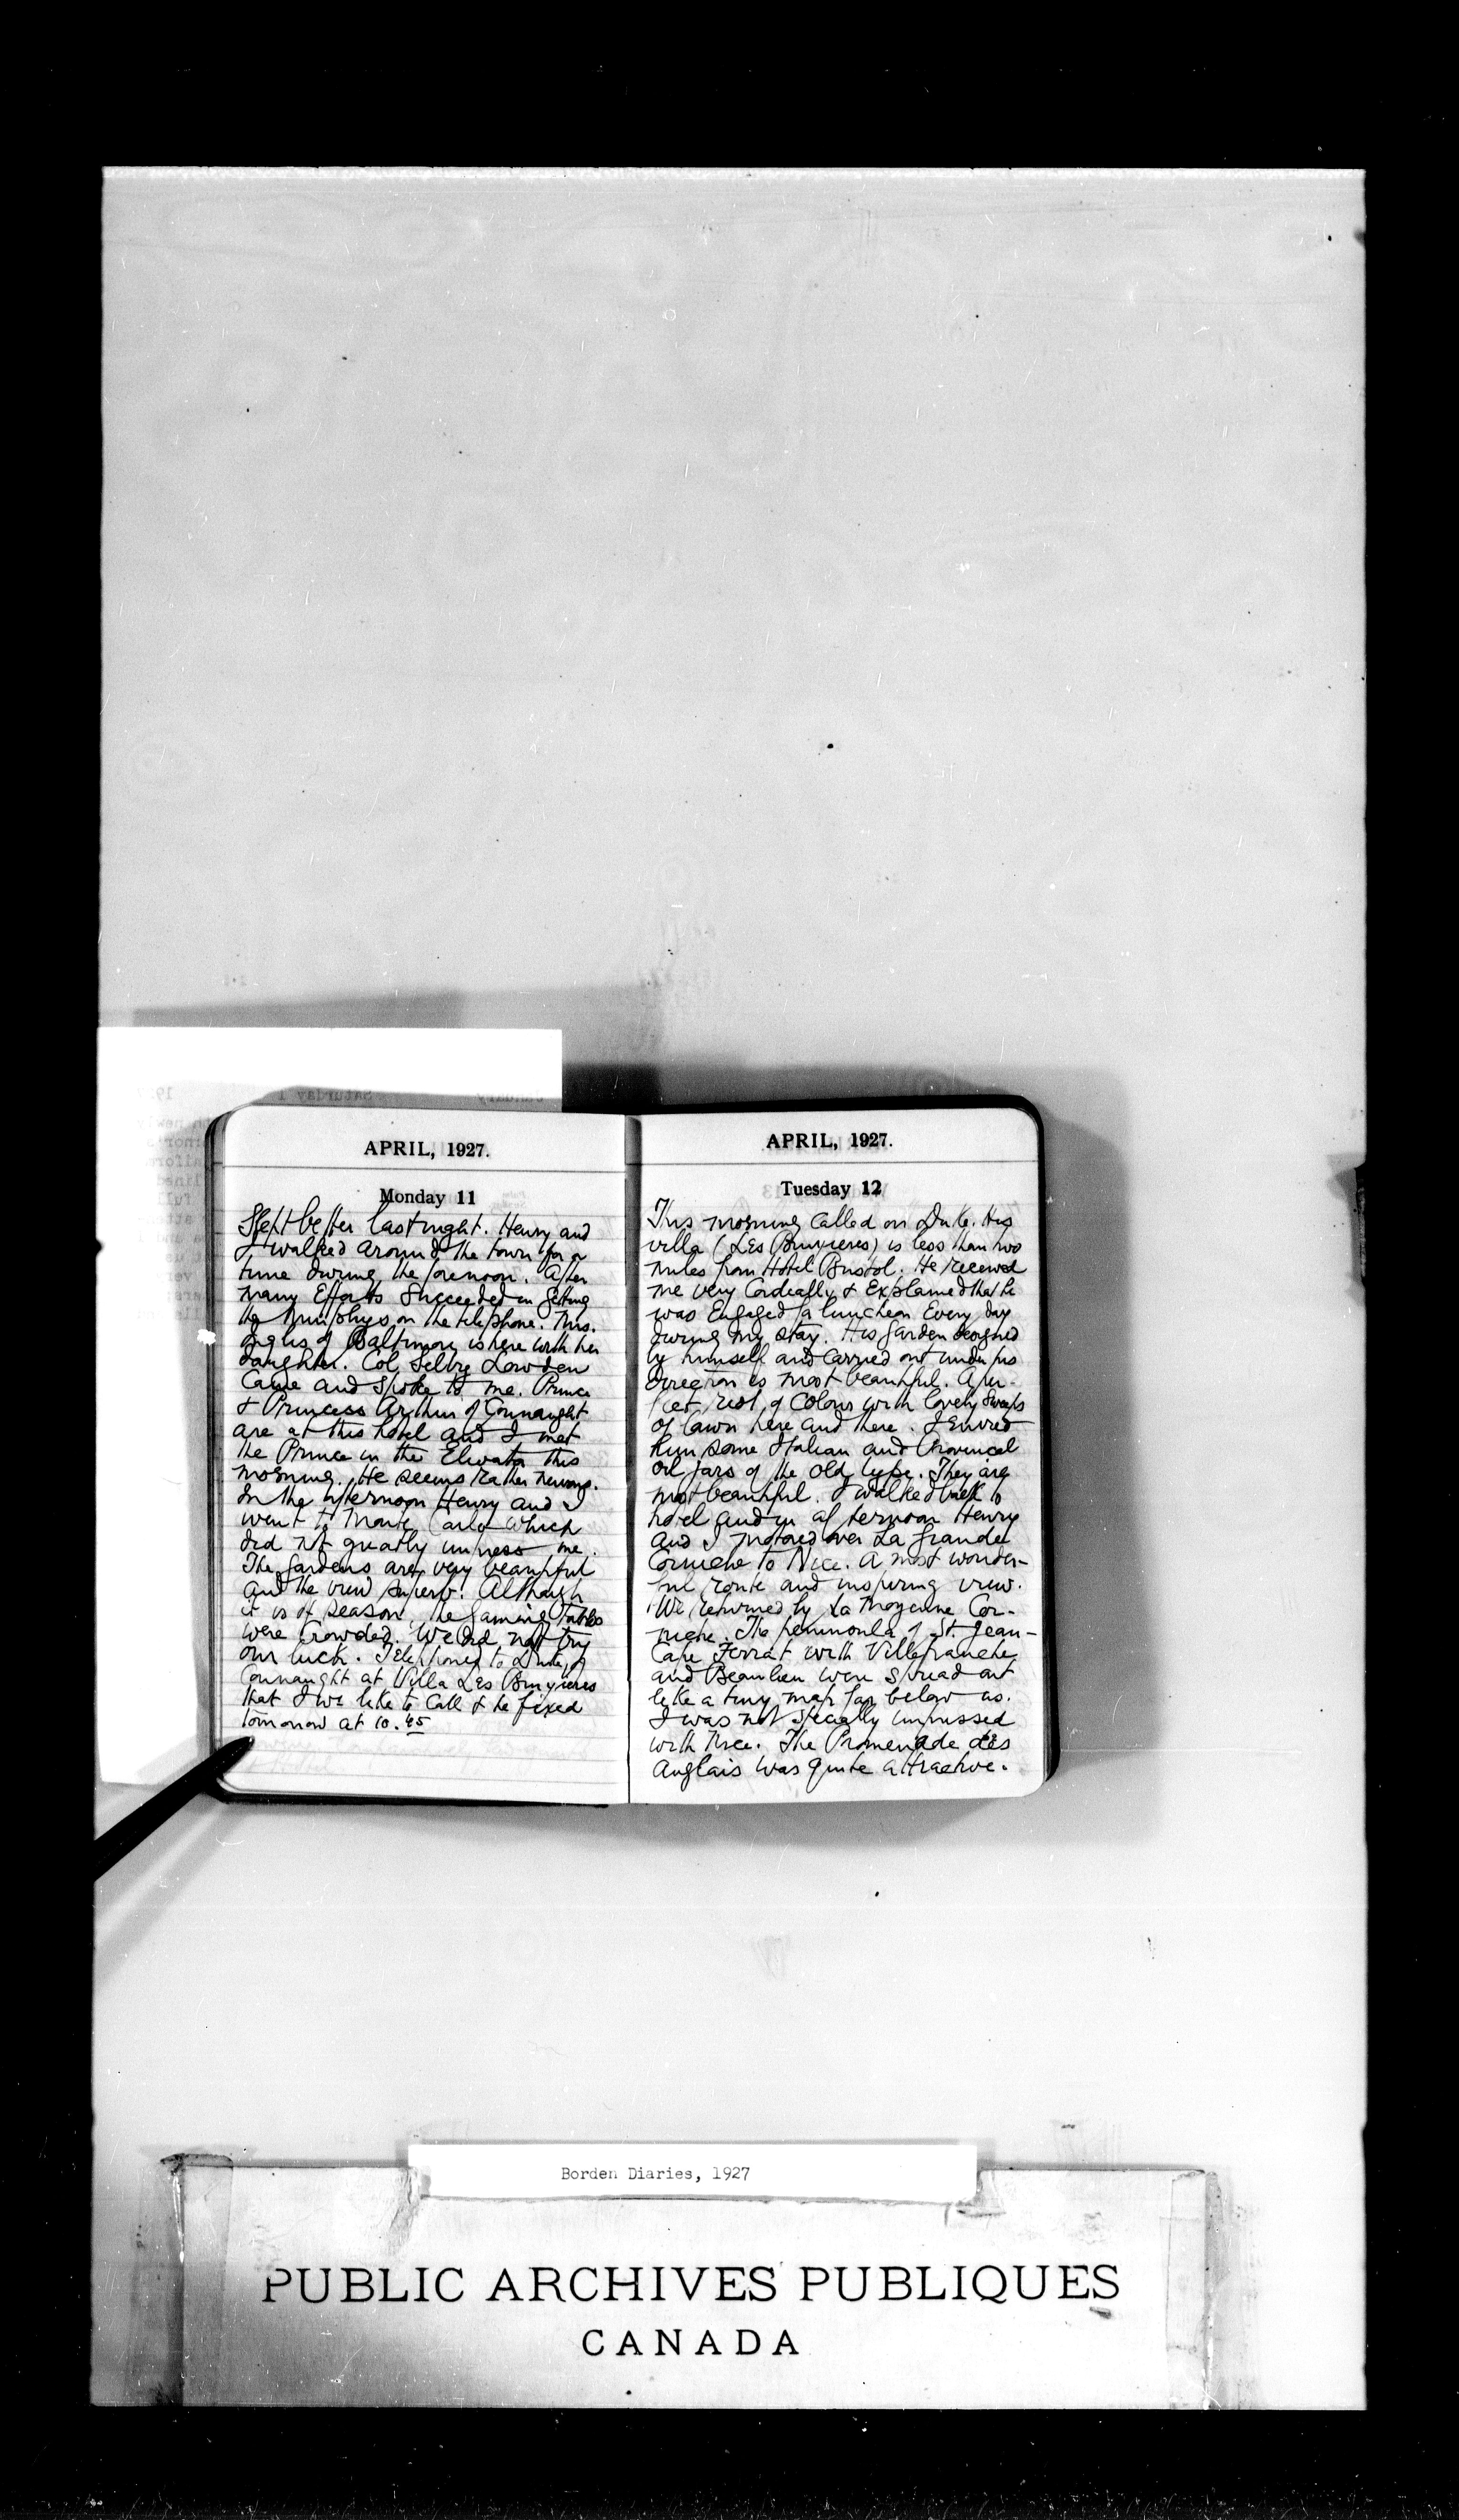 APRIL, 1927.
Monday 11
Slept better last night. Henry and
I walked around the town for a
time during the forenoon. After
many efforts succeeded in getting
the on the telephone. Mrs.
Angus of Baltimore is here with her
daughter. Col Selby Lowden
came and spoke to me. Prince
& Princess Arthur of Connaught
are at this hotel and I met
the Prince in the Elevator this
morning. He seems rather nervous.
In the afternoon Henry and I
went to Monte Carlo which
did not greatly impress me.
The Gardens are very beautiful
and the view superb. Although
it is of season, the gaming tables
were crowded. We did not try
our luck. Telephoned to Duke of
Connaught at Villa Les Bruyieres
that I wd like to call & he fixed
tomorrow at 10.45
APRIL, 1927.
Tuesday 12
This morning called on Duke. His
villa (Les Bruyieres) is less than two
miles from Hotel Bristol. He received
me very cordially & explained that he
was engaged for luncheon every day
during my stay. His garden designed
by himself and carried out under his
direction is most beautiful. A per-
fect riot of colour with lovely sweeps
of lawn here and there. I envied
him some Italian and Provincal
oil jars of the old type. They are
most beautiful. I walked back to
hotel and in afternoon Henry
and I motored over La Grande
Corniche to Nice. A most wonder-
ful route and inspiring view.
We returned by La Moyenne Cor-
niche. The peninsula of St. Jean-
Cape Ferrat with Villefranche
and Beaulieu were spread out
like a tiny map far below us.
I was not specially impressed
with Nice. The Promenade des
Anglais was quite attractive.
Borden Diaries, 1927
PUBLIC ARCHIVES PUBLIQUES
CANADA